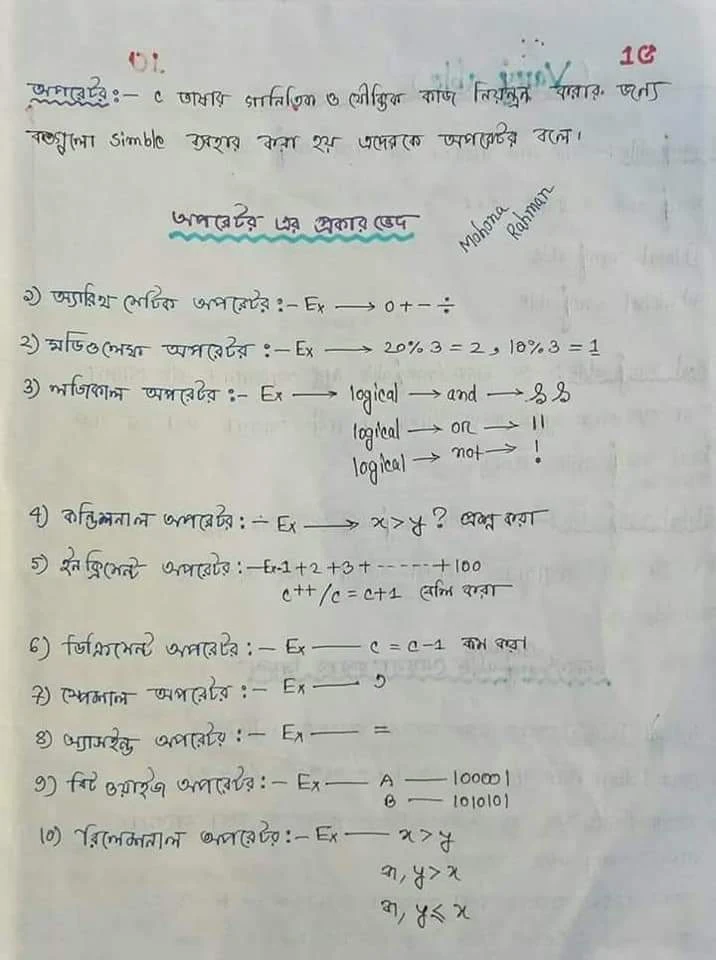 01. 10
অপরেটর:- C ভাষার গানিতিক ও যৌক্তিক কাজ নিয়ন্ত্রন করার জন্যে
কতগুলো simble ব্যবহার করা হয় এদেরকে অপরেটর বলে।
অপরেটর এর প্রকার ভেদ
Mohona
Rahman
১) অ্যারিথ মেটিক অপরেটর:- Ex → 0 + - ÷
২) মডিওলেস অপরেটর:- Ex → 20% 3 = 2, 10% 3 = 1
3) লজিকাল অপরেটর:- Ex → logical → and → &&
logical → or → ||
logical → not → !
4) কন্ডিশনাল অপরেটর:- Ex → x > y ? প্রশ্ন করা
5) ইনক্রিমেন্ট অপরেটর:- Ex-1+2+3+-----+100
c++/c = c+1 বেশি করা
6) ডিক্রিমেন্ট অপরেটর:- Ex — c = c-1 কম করা
7) স্পেশাল অপরেটর:- Ex — ,
8) অ্যাসাইন্ড অপরেটর:- Ex — =
9) বিট ওয়াইজ অপরেটর:- Ex — A — 100001
B — 1010101
10) রিলেশনাল অপরেটর:- Ex — x > y
x, y > x
x, y ⩽ x